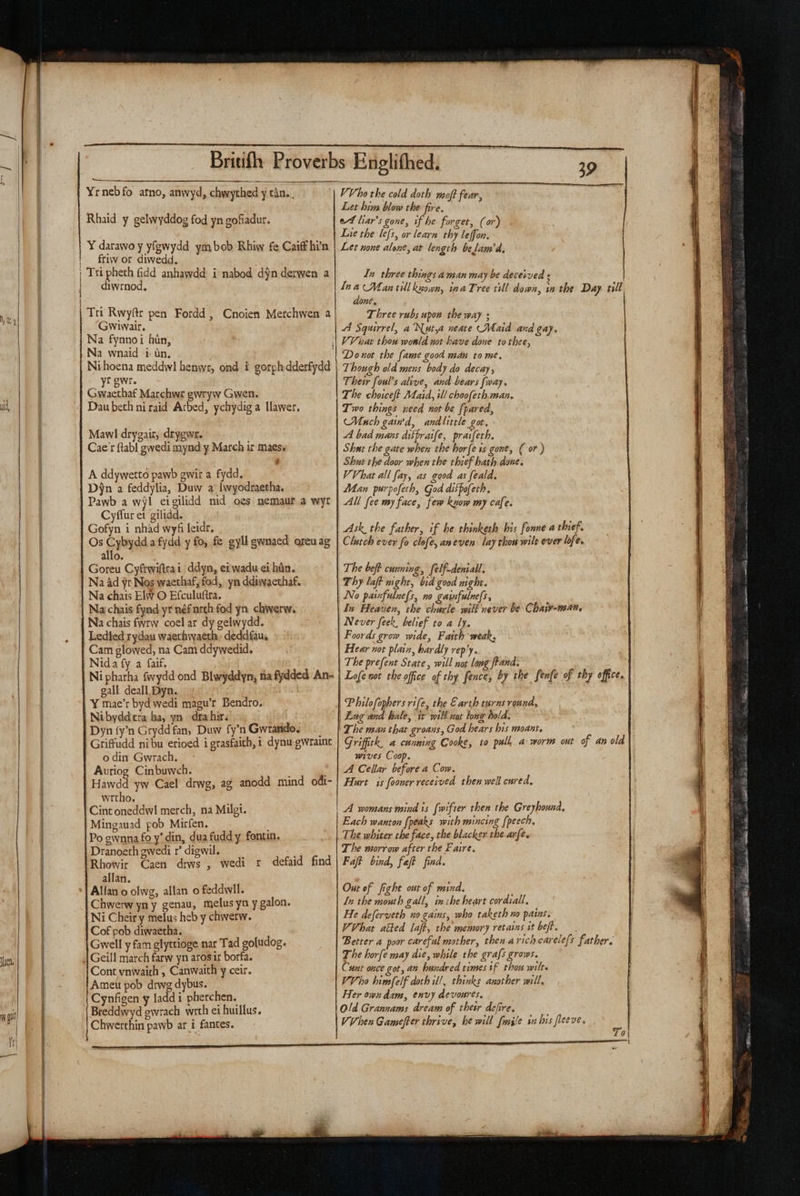 Britiſh Proverbs Engliſhed.
39
Yr neb fo arno, anwyd, chwythed y tân.
Rhaid y gelwyddog fod yn gofiadur.
Y darawo y yſgwydd ym bob Rhiw fe Caiff hi'n
friw or diwedd.
Tri pheth ſidd anhawdd i nabod dŷn derwen a
diwrnod.
Tri Rwyſtr pen Fordd, Cnoien Merchwen a
Gwiwair.
Na fynno i hûn,
Na wnaid i ûn.
Ni hoena meddwl henwr, ond i gorph dderfydd
yr gwr.
Gwaethaf Marchwr gwryw Gwen.
Dau beth ni raid Arbed, ychydig a llawer.
Mawl drygair, drygwr.
Cae'r ſtabl gwedi mynd y March ir maes.
A ddywetto pawb gwir a fydd.
Dŷn a feddylia, Duw a lwyodraetha.
Pawb a wŷl ei gilidd nid oes nemaur a wyr
Cyfſur ei gilidd.
Gofyn i nhâd wyfi leidr.
Os Cybydd a fydd y fo, fe gyll gwnaed oreu ag
allo.
Goreu Cyfrwiſtra i ddyn, ei wadu ei hûn.
Na âd ŷr Nos waethaf, fod, yn ddiwaethaf.
Na chais Elŵ O Eſculuſtra.
Na chais fynd yr nêf nrth fod yn chwerw.
Na chais ſwrw coel ar dy gelwydd.
Ledled rydau waethwaeth deddfau.
Cam glowed, na Cam ddywedid.
Nid a ſy a ſaif.
Ni pharha ſwydd ond Blwyddyn, na fydded An-
gall deall Dyn.
Y mae'r byd wedi magu'r Bendro.
Ni bydd tra ha, yn dra hir.
Dyn ſy'n Grydd fan, Duw ſy'n Gwrando.
Griffudd ni bu erioed i graſfaith, i dynu gwraint
o din Gwrach.
Auriog Cinbuwch.
Hawdd yw Cael drwg, ag anodd mind odi-
wrtho.
Cint oneddwl merch, na Milgi.
Mingauad pob Mirſen.
Po gwnna fo y' din, dua fudd y fontin.
Dranoeth gwedi r' digwil.
Rhowir Caen drws, wedi r defaid find
allan.
Allan o olwg, allan o feddwll.
Chwerw yn y genau, melus yn y galon.
Ni Cheir y melus heb y chwerw.
Cof pob diwaetha.
Gwell y fam glyttioge nar Tad goludog.
Geill march farw yn aros ir borfa.
Cont vnwaith, Canwaith y ceir.
Ameu pob drwg dybus.
Cynfigen y ladd i pherchen.
Breddwyd gwrach wrth ei huillus.
Chwerthin pawb ar i fantes.
VVho the cold doth moſt fear,
Let him blow the fire.
A liar's gone, if he forget, (or)
Lie the leſs, or learn thy leſſon.
Let none alone, at length be lam'd.
In three things a man may be deceived;
In a Man till known, in a Tree till down, in the Day till
done.
Three rubs upon the way;
A Squirrel, a Nut, a neate Maid and gay.
VVhat thou would not have done to thee,
Do not the ſame good man to me.
Though old mens body do decay,
Their ſoul's alive, and bears ſway.
The choiceſt Maid, ill chooſeth man.
Two things need not be ſpared,
Much gain'd, and little got.
A bad mans diſpraiſe, praiſeth.
Shut the gate when the horſe is gone, (or)
Shut the door when the thief hath done.
VVhat all ſay, as good as ſeald.
Man purpoſeth, God diſpoſeth.
All ſee my face, few know my caſe.
Ask the father, if he thinketh his ſonne a thief.
Clutch ever ſo cloſe, an even lay thou wilt ever loſe.
The beſt cunning, ſelf-deniall.
Thy laſt night, bid good night.
No painfulneſs, no gainfulneſs,
In Heaven, the churle will never be Chair-man.
Never ſeek, belief to a ly.
Foords grow wide, Faith weak,
Hear not plain, hardly rep'y.
The preſent State, will not long ſtand.
Loſe not the office of thy fence, by the ſenſe of thy office.
Philoſophers riſe, the Earth turns round,
Lug and hale, it will not long hold.
The man that groans, God hears his moans,
Griffith, a cunning Cooke, to pull a worm out of an old
wives Coop.
A Cellar before a Cow.
Hurt is ſooner received then well cured.
A womans mind is ſwifter then the Greyhound,
Each wanton ſpeaks with mincing ſpeech.
The whiter the face, the blacker the arſe.
The morrow after the Faire.
Faſt bind, faſt find.
Out of ſight out of mind.
In the mouth gall, in the heart cordiall.
He deſerveth no gains, who taketh no pains.
VVhat acted laſt, the memory retains it beſt.
Better a poor careful mother, then a rich careleſs father.
The horſe may die, while the graſs grows.
Cunt once got, an hundred times if thou wilt.
VVho himſelf doth ill, thinks another will.
Her own dam, envy devoures.
Old Grannams dream of their deſire.
VVhen Gameſter thrive, he will ſmile in his ſleeve.
To